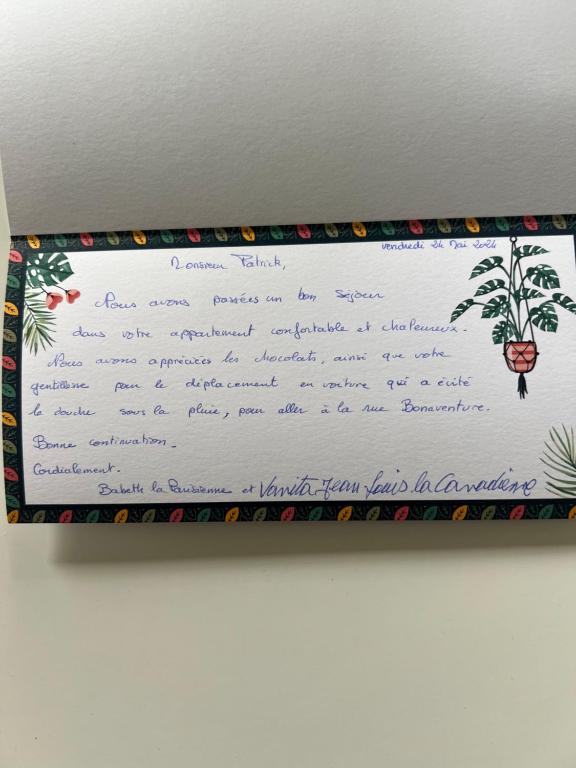 vendredi 24 Mai 2024
Monsieur Patrick,
Nous avons passées un bon séjour
dans votre appartement confortable et chaleureux.
Nous avons appréciées les chocolats, ainsi que votre
gentillesse pour le déplacement en voiture qui a évité
la douche sous la pluie, pour aller à la rue Bonaventure.
Bonne continuation.
Cordialement.
Babeth la Parisienne et Vanita Jean Louis la Canadienne